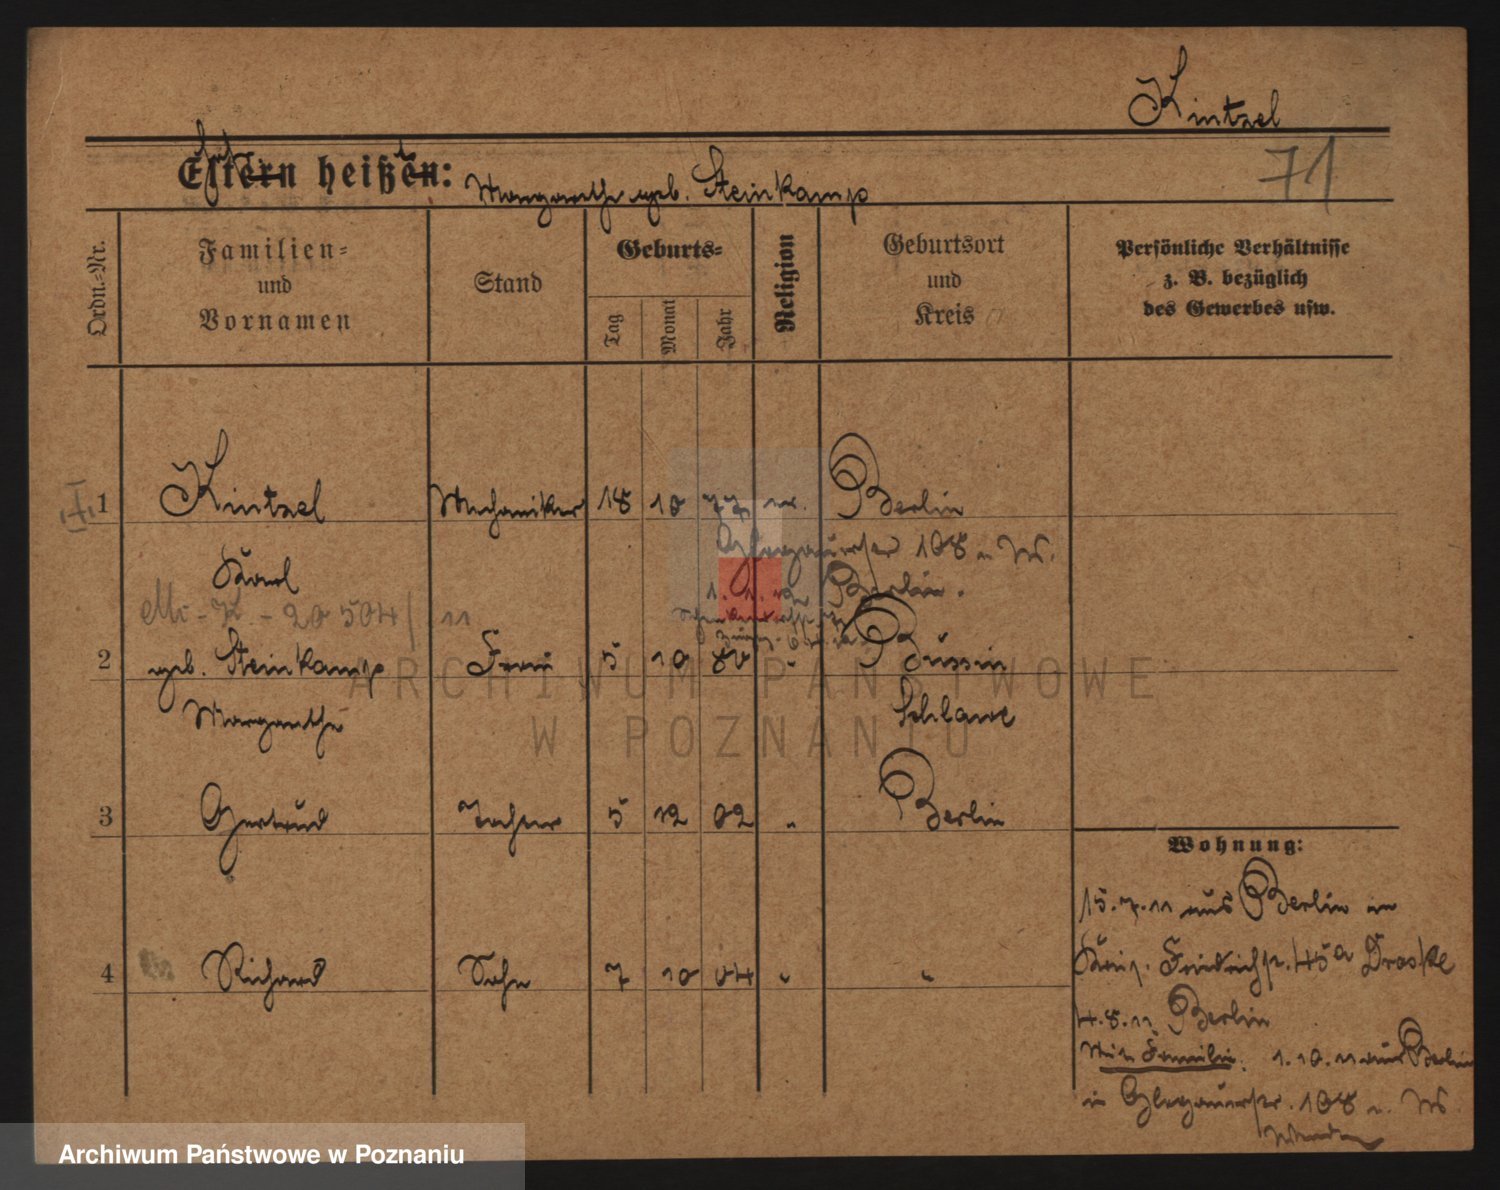 Kintzel
71
Eltern heißen: Margarethe geb. Steinkamp
Ordn.-Nr.
Familien- und Vornamen
Stand
Geburts-
Tag
Monat
Jahr
Religion
Geburtsort und Kreis
Persönliche Verhältnisse z. B. bezüglich des Gewerbes usw.
1 Kintzel Mechaniker 18 10 77 ev. Berlin
Glogauerstr 108 u W.
Karl
Berlin.
20 504/11
2 geb. Steinkamp Frau 5 10 80 " Züssin
Margarethe Schlawe
3 Gertrud Tochter 5 12 02 " Berlin
Wohnung:
15.7.11 aus Berlin in
4 Richard Sohn 7 10 04 " "
Friedrichstr. 45a Draske
4.8.11 Berlin
Mit Familie. 1.10.11 aus Berlin
in Glogauerstr. 108 u. W
ARCHIWUM PAŃSTWOWE
W POZNANIU
Archiwum Państwowe w Poznaniu